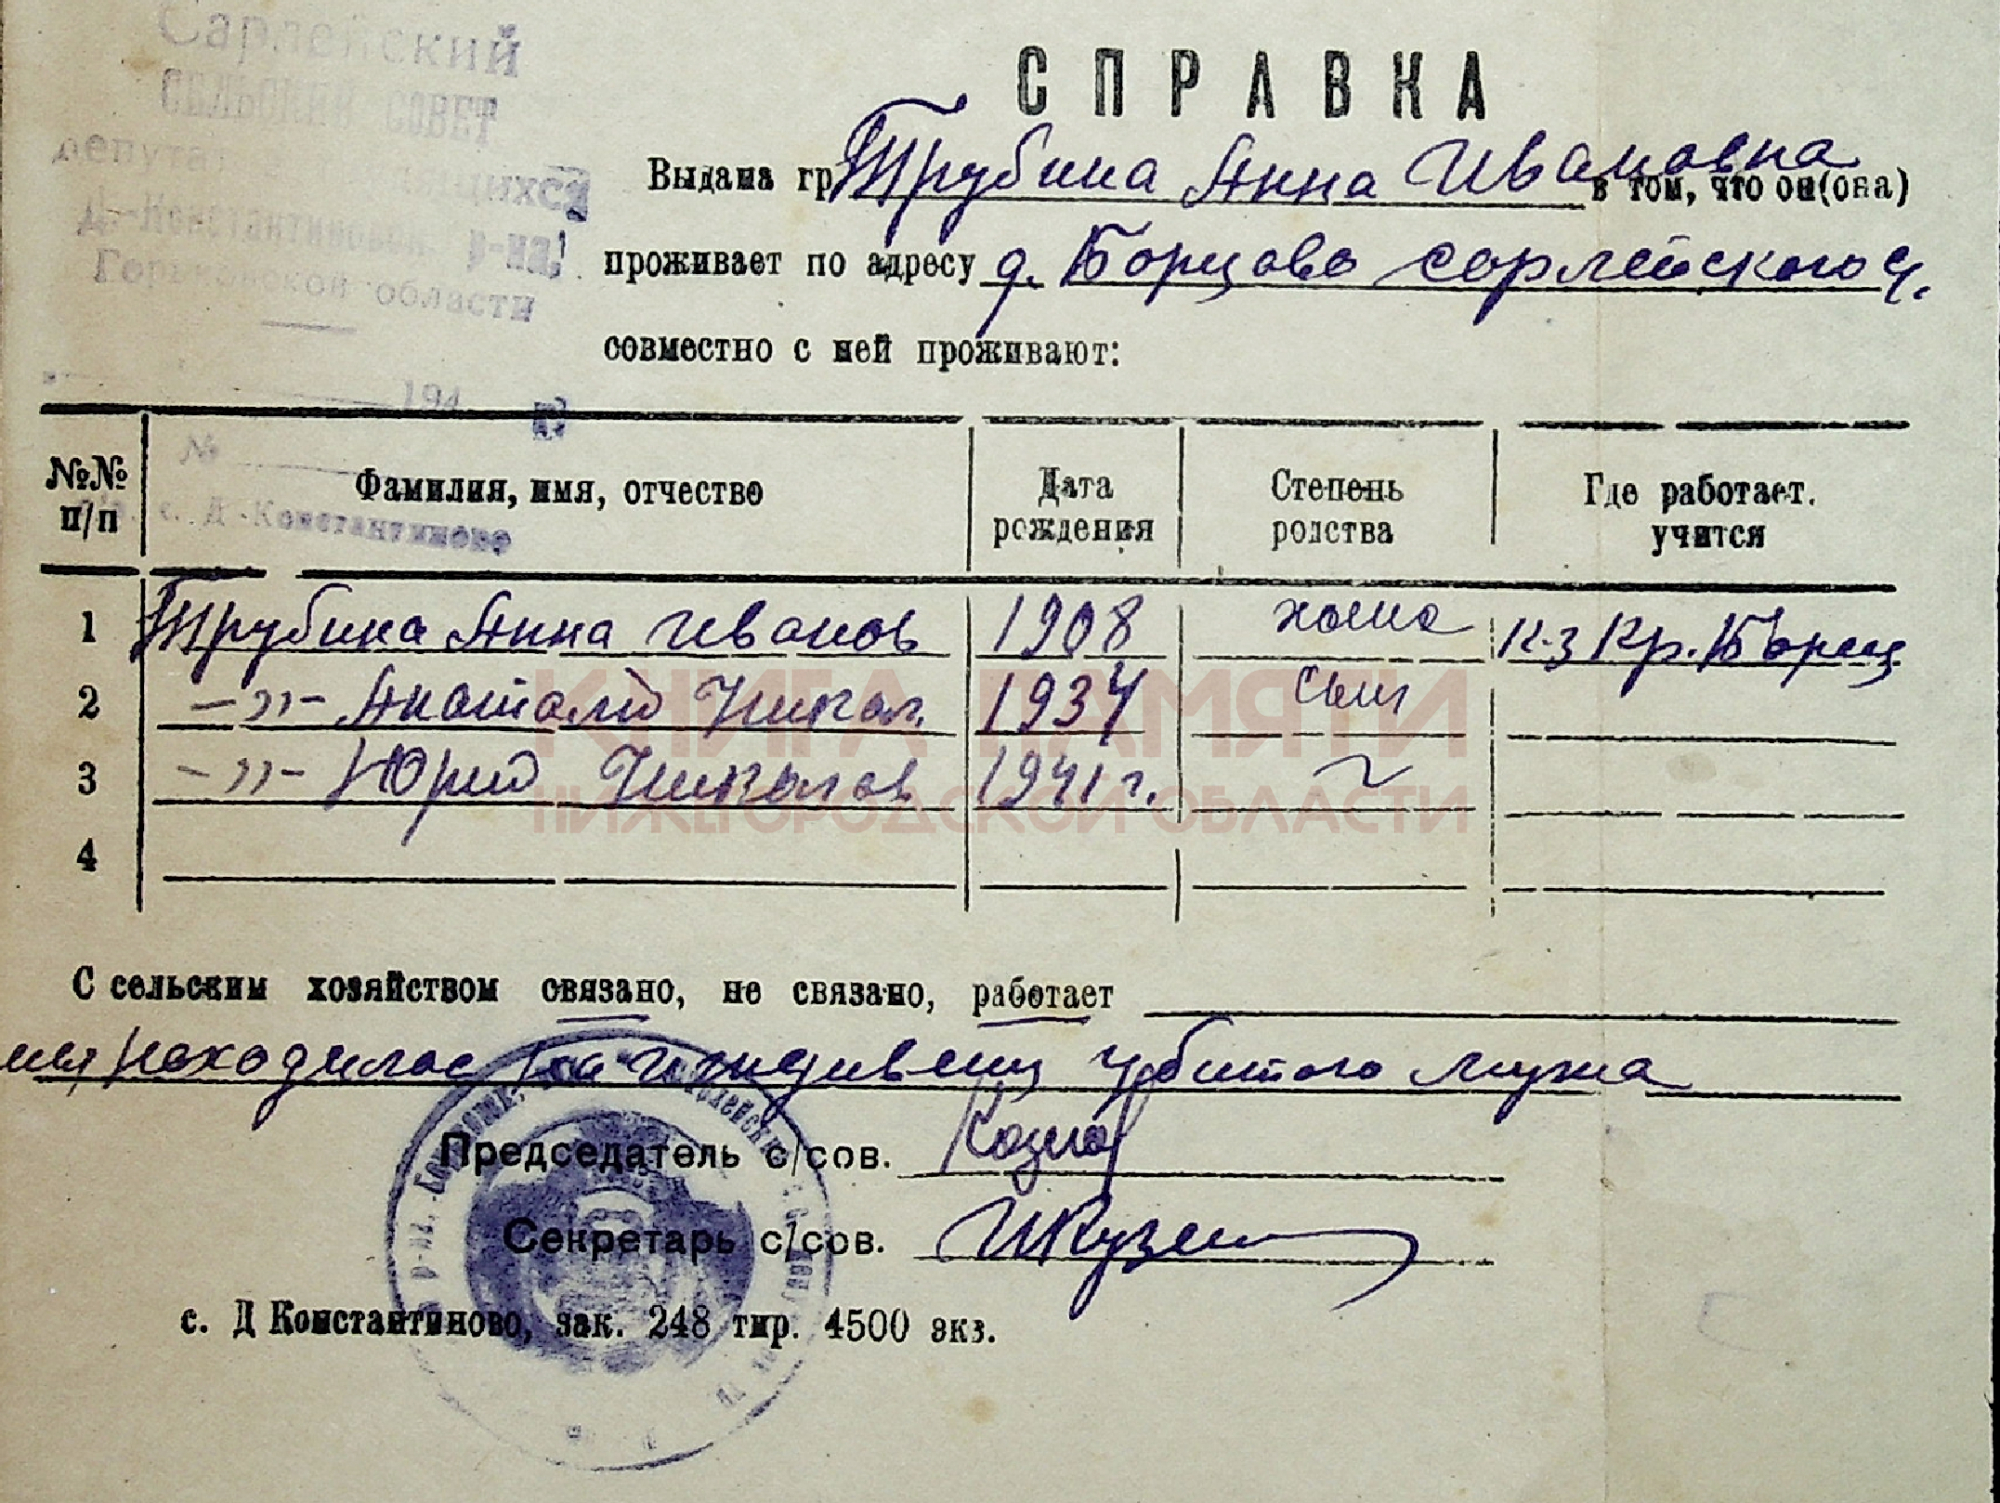 Сарлейский
СЕЛЬСКИЙ СОВЕТ
депутатов трудящихся
Д.-Константиновск. р-на,
Горьковской области
194 г.
№
с. Д-Константиново
СПРАВКА
Выдана гр. Трубина Анна Ивановна в том, что он(она)
проживает по адресу д. Борцово Сарлейского с/
совместно с ней проживают:
№№ п/п Фамилия, имя, отчество Дата рождения Степень родства Где работает. учится
1 Трубина Анна Иванов 1908 жена К-з Кр. Борец
2 -"- Анатолий Никол. 1934 сын
3 -"- Юрий Николаев 1941 г. ~
4
С сельским хозяйством связано, не связано, работает
находилас на иждивении убитого мужа
Председатель с/сов.
Секретарь с/сов.
с. Д Константиново, зак. 248 тир. 4500 экз.
КНИГА ПАМЯТИ
НИЖЕГОРОДСКОЙ ОБЛАСТИ